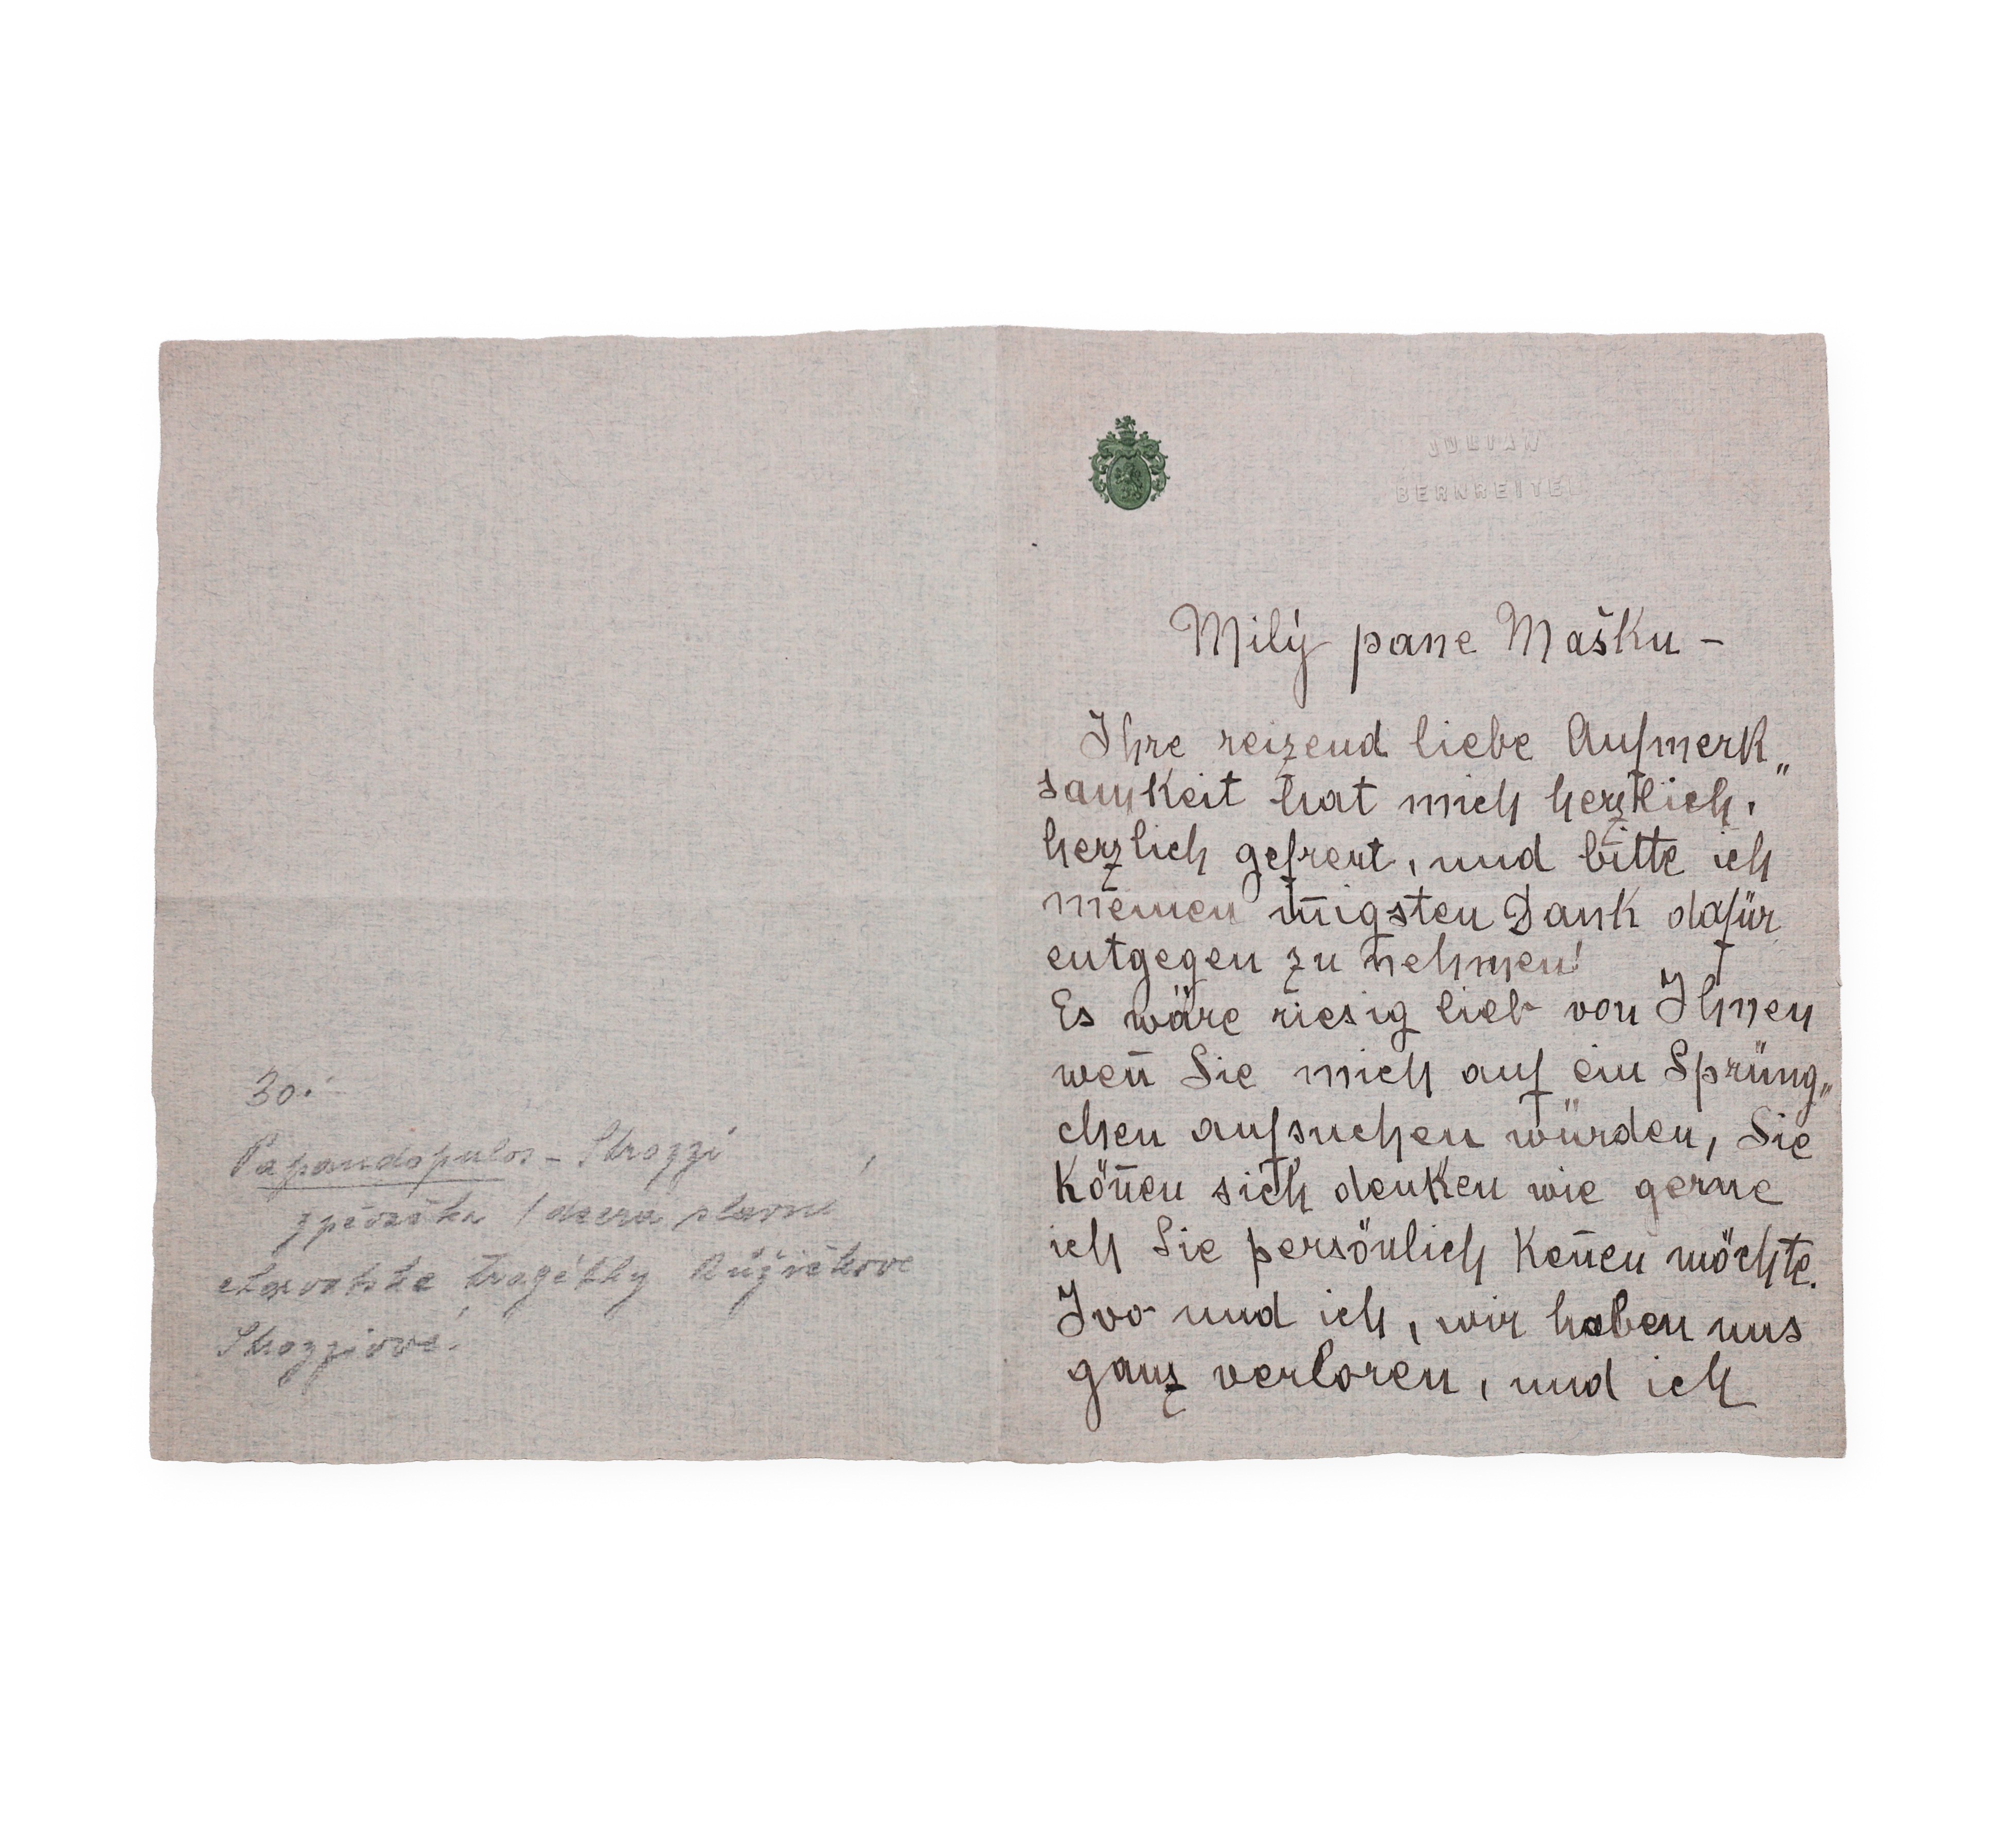 30.-
Papandopulos - Strozzi
zpěvačka / dcera slavné
charvatske tragédky Růžičkove
Strozziove.
JULIAN
BERNREITE
Milý pane Mašku -
Ihre reizend liebe Aufmerk„
samkeit hat mich herzlich,
herzlich gefreut, und bitte ich
meinen iñigsten Dank dafür
entgegen zu nehmen!
Es wäre riesig lieb von Ihnen
weñ Sie mich auf ein Sprüng„
chen aufsuchen würden, Sie
köñen sich denken wie gerne
ich Sie persönlich keñen möchte.
Ivo und ich, wir haben uns
ganz verloren, und ich